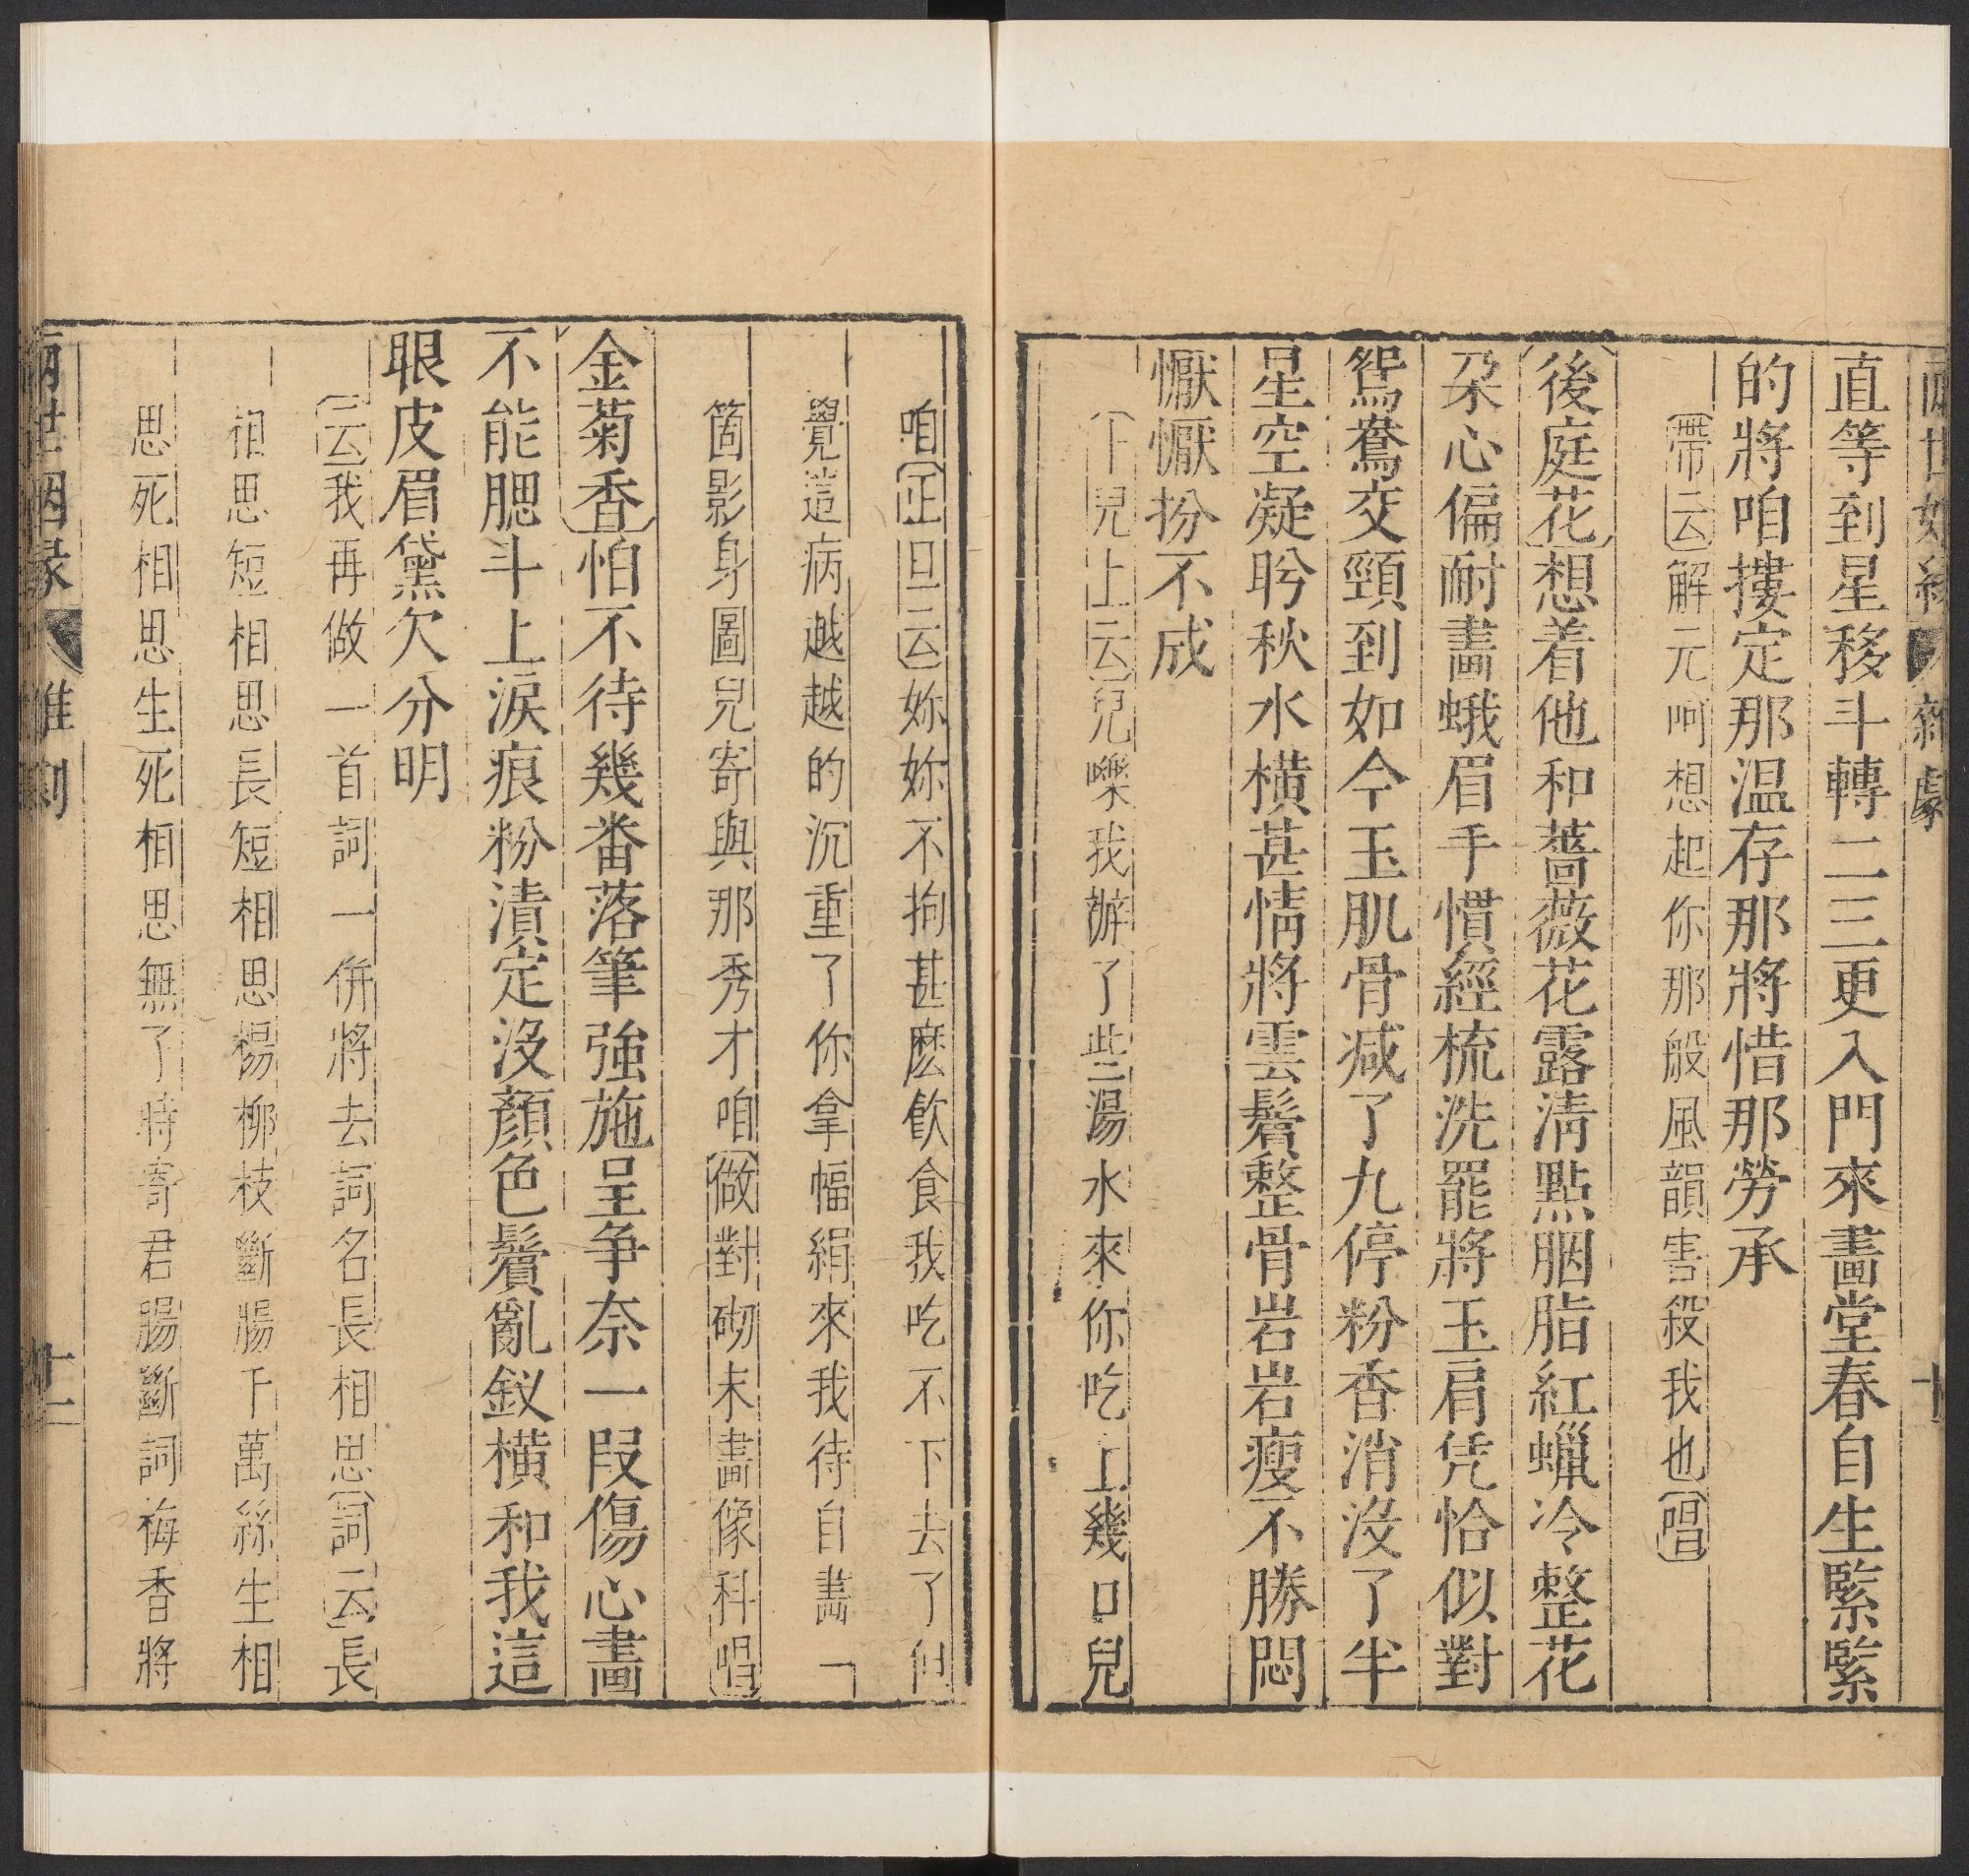 兩世姻緣 雜劇 十
直等到星移斗轉二三更入門來畫堂春自生緊緊
的將咱摟定那溫存那將惜那勞承
帶云解元呵想起你那般風韻害殺我也唱
後庭花想着他和薔薇花露淸點胭脂紅蠟冷整花
朶心偏耐畵蛾眉手慣經梳洗罷將玉肩凭恰似對
鴛鴦交頸到如今玉肌骨减了九停粉香消沒了半
星空凝盻秋水橫甚情將雲鬢整骨岩岩瘦不勝悶
懨懨扮不成
卜兒上云兒嚛我辦了些湯水來你吃上幾口兒
咱正旦云妳妳不拘甚麽飮食我吃不下去了但
覺這病越越的沉重了你拿幅絹來我待自畵一
箇影身圖兒寄與那秀才咱做對砌末畵像科唱
金菊香怕不待幾番落筆強施呈争奈一叚傷心畵
不能腮斗上淚痕粉漬定沒顏色鬢亂釵橫和我這
眼皮眉黛欠分明
云我再做一首詞一倂將去詞名長相思詞云長
相思短相思長短相思楊柳枝斷腸千萬絲生相
思死相思生死相思無了時寄君腸斷詞梅香將
兩世姻緣 雜劇 十一